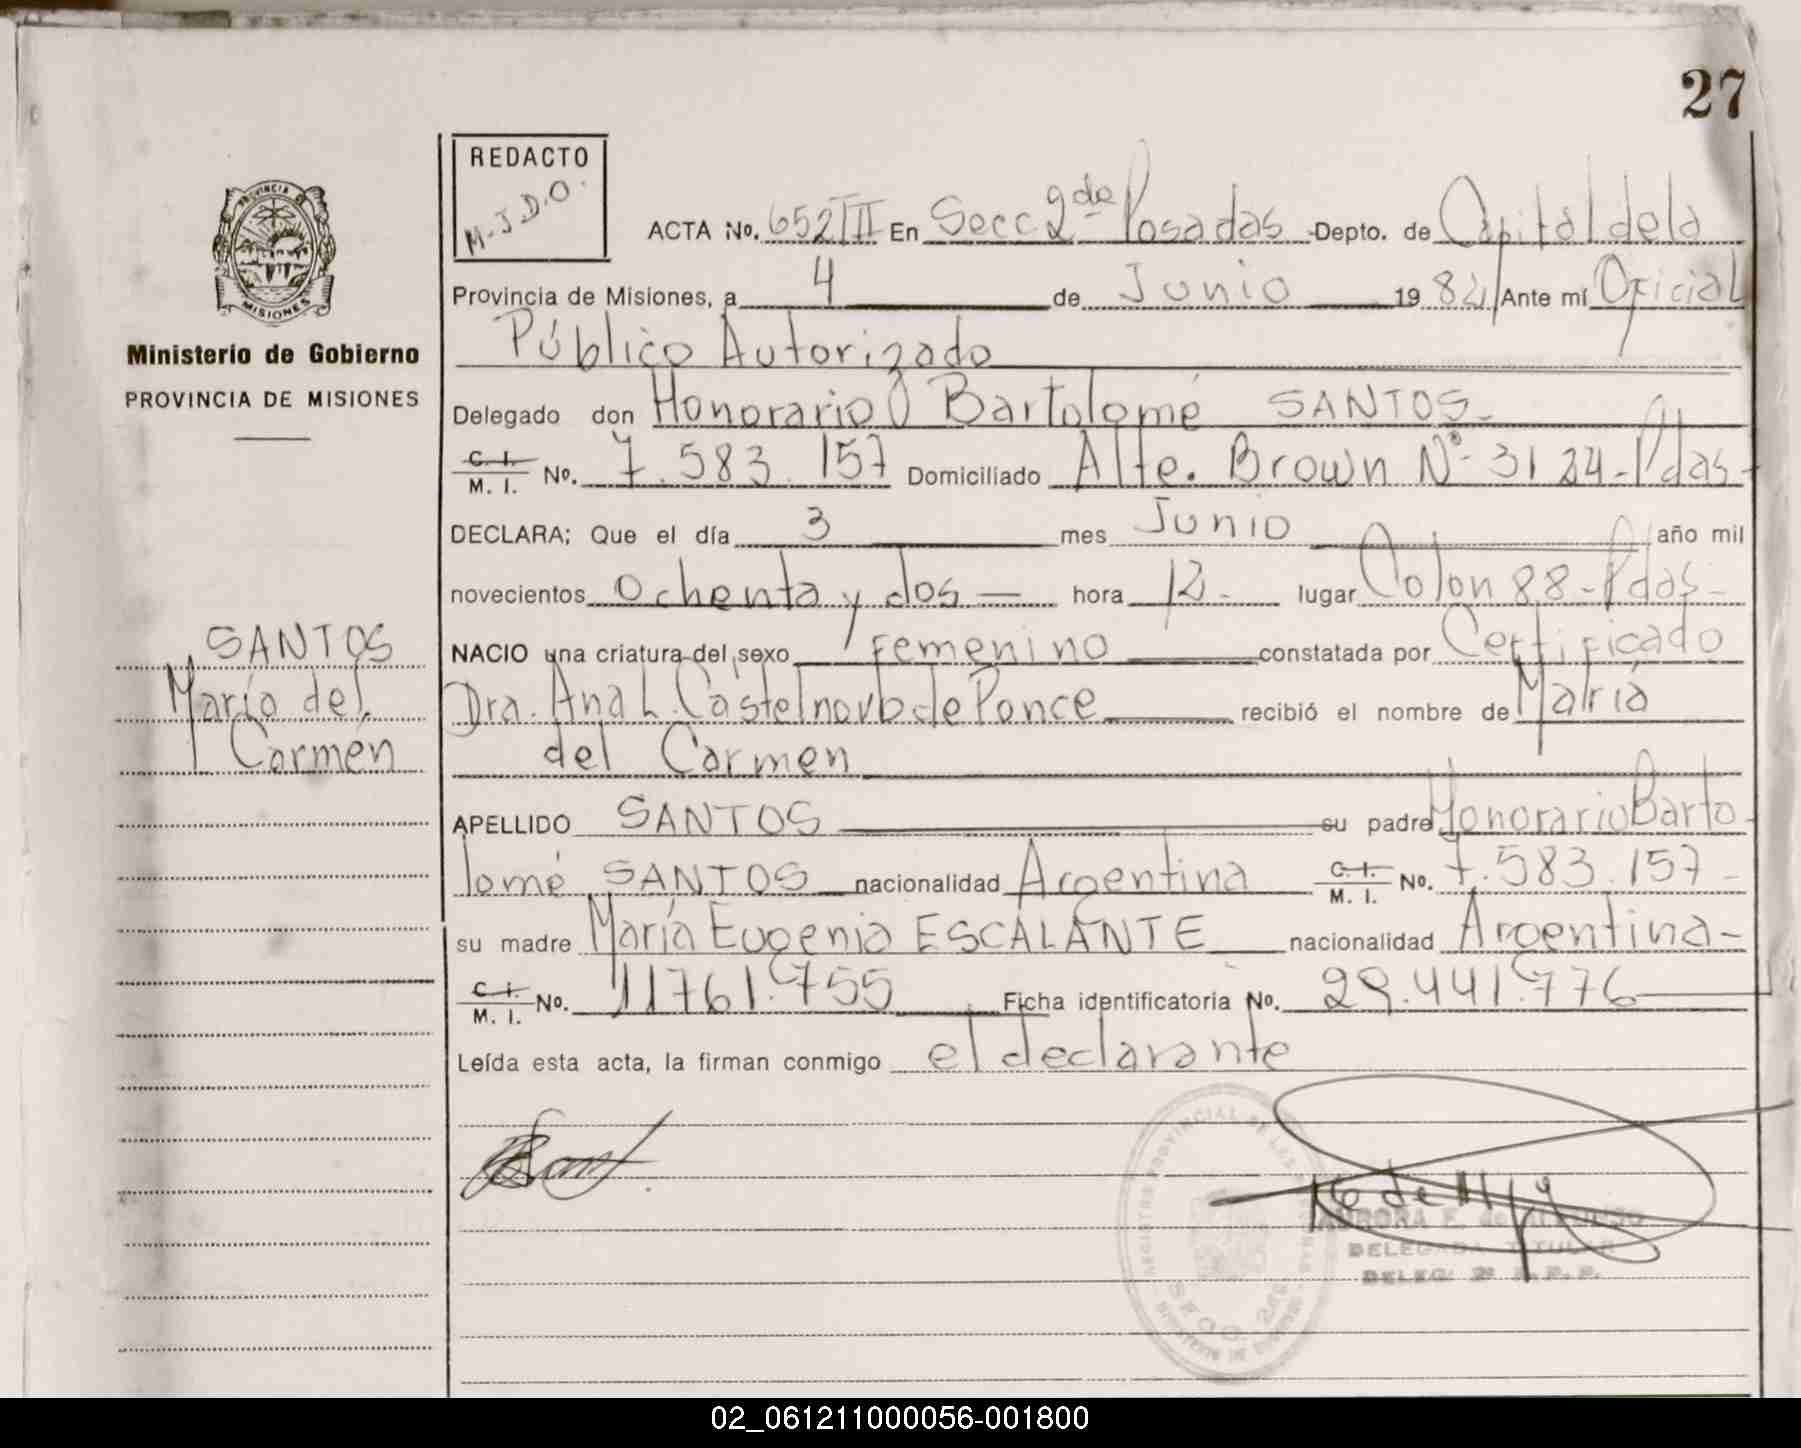 27
REDACTO
M-J.D.O.
ACTA No. 652/II En Secc 2da Posadas Depto. de Capital de la
Provincia de Misiones, a 4 de Junio 1982 Ante mí Oficial
Público Autorizado
Delegado don Honorario Bartolomé SANTOS-
C. I.
M. I. No. 7.583.157 Domiciliado Alte. Brown Nº 3124-Pdas-
DECLARA; Que el día 3 mes Junio año mil
novecientos ochenta y dos — hora 12- lugar Colon 88-Pdas-
NACIO una criatura del sexo femenino constatada por Certificado
Dra. Ana L. Castelnovo de Ponce recibió el nombre de María
del Carmen
APELLIDO SANTOS su padre Honorario Barto-
lomé SANTOS nacionalidad Argentina C. I. M. I. No. 7.583.157-
su madre María Eugenia ESCALANTE nacionalidad Argentina-
C. I.
M. I. No. 11761.755 Ficha identificatoria No. 29.441.776
Leída esta acta, la firman conmigo el declarante
PROVINCIA
MISIONES
Ministerio de Gobierno
PROVINCIA DE MISIONES
SANTOS
María del
Carmen
REGISTRO PROVINCIAL DE LAS
SECC. 2da
MINISTERIO DE GOBIERNO
AURORA F. de
DELEGADA TITULAR
DELEG. 2ª R.P.P.
02_061211000056-001800